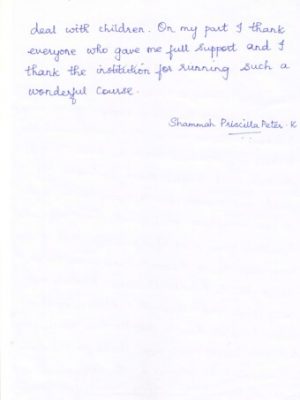 deal with children. On my part I thank
everyone who gave me full support and I
thank the institution for running such a
wonderful course.
Shammah Priscilla Peter. K